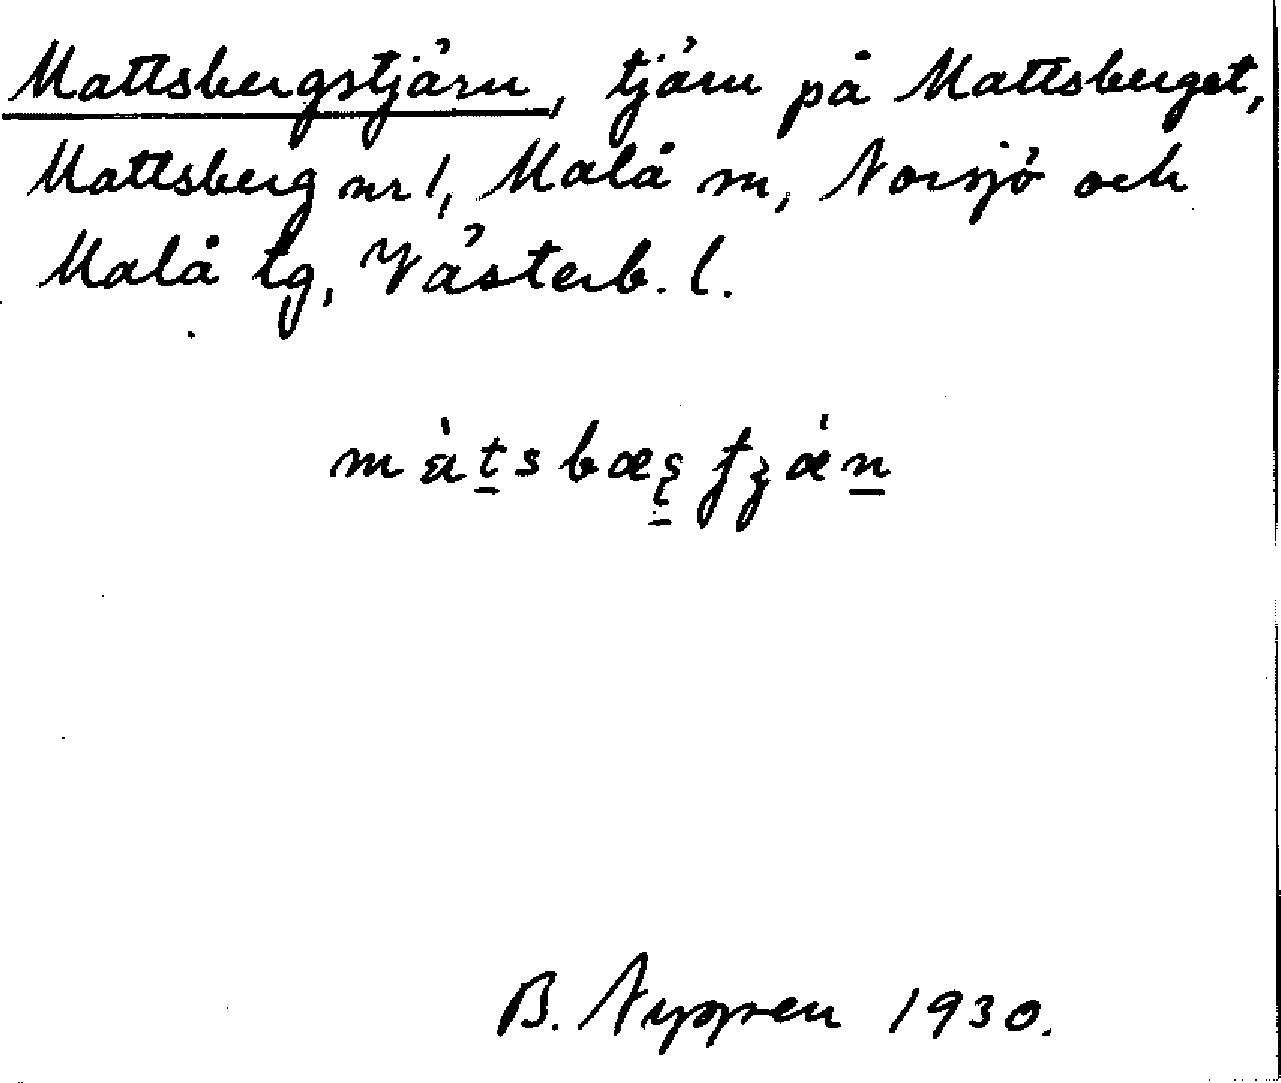 Mattsbergstjärn, tjärn på Mattsberget,
Mattsberg nr 1, Malå sn, Norsjö och
Malå tg, Västerb. l.
B. Nygren 1930.